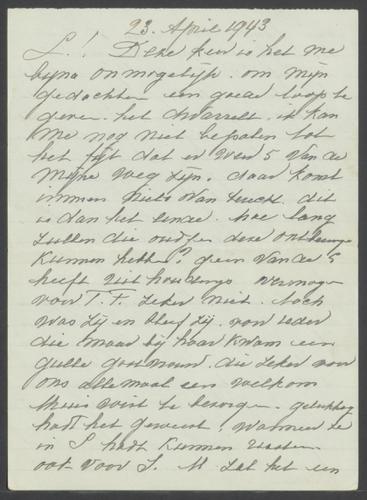 23. April 1943
L.! Deze keer is het me
bijna onmogelijk om mijn
gedachten een goede loop te
geven. het dwarrelt. ik kan
me nog niet bepalen tot
het feit dat er weer 5 van de
mijne weg zijn. daar komt
immers niets van terecht. dit
is dan het einde. hoe lang
zullen die oudjes deze
kunnen hebben? geen van de 5
heeft uithoudings vermogen
voor T. F. zeker niet. toch
was zij en bleef zij voor ieder
die maar bij haar kwam een
gulle gastvrouw. die zeker voor
ons allemaal een welkom
thuis wist te bezorgen. gelukkig
had het geweest! wanneer ze
in S hadt kunnen
ook voor S. M. zal het een